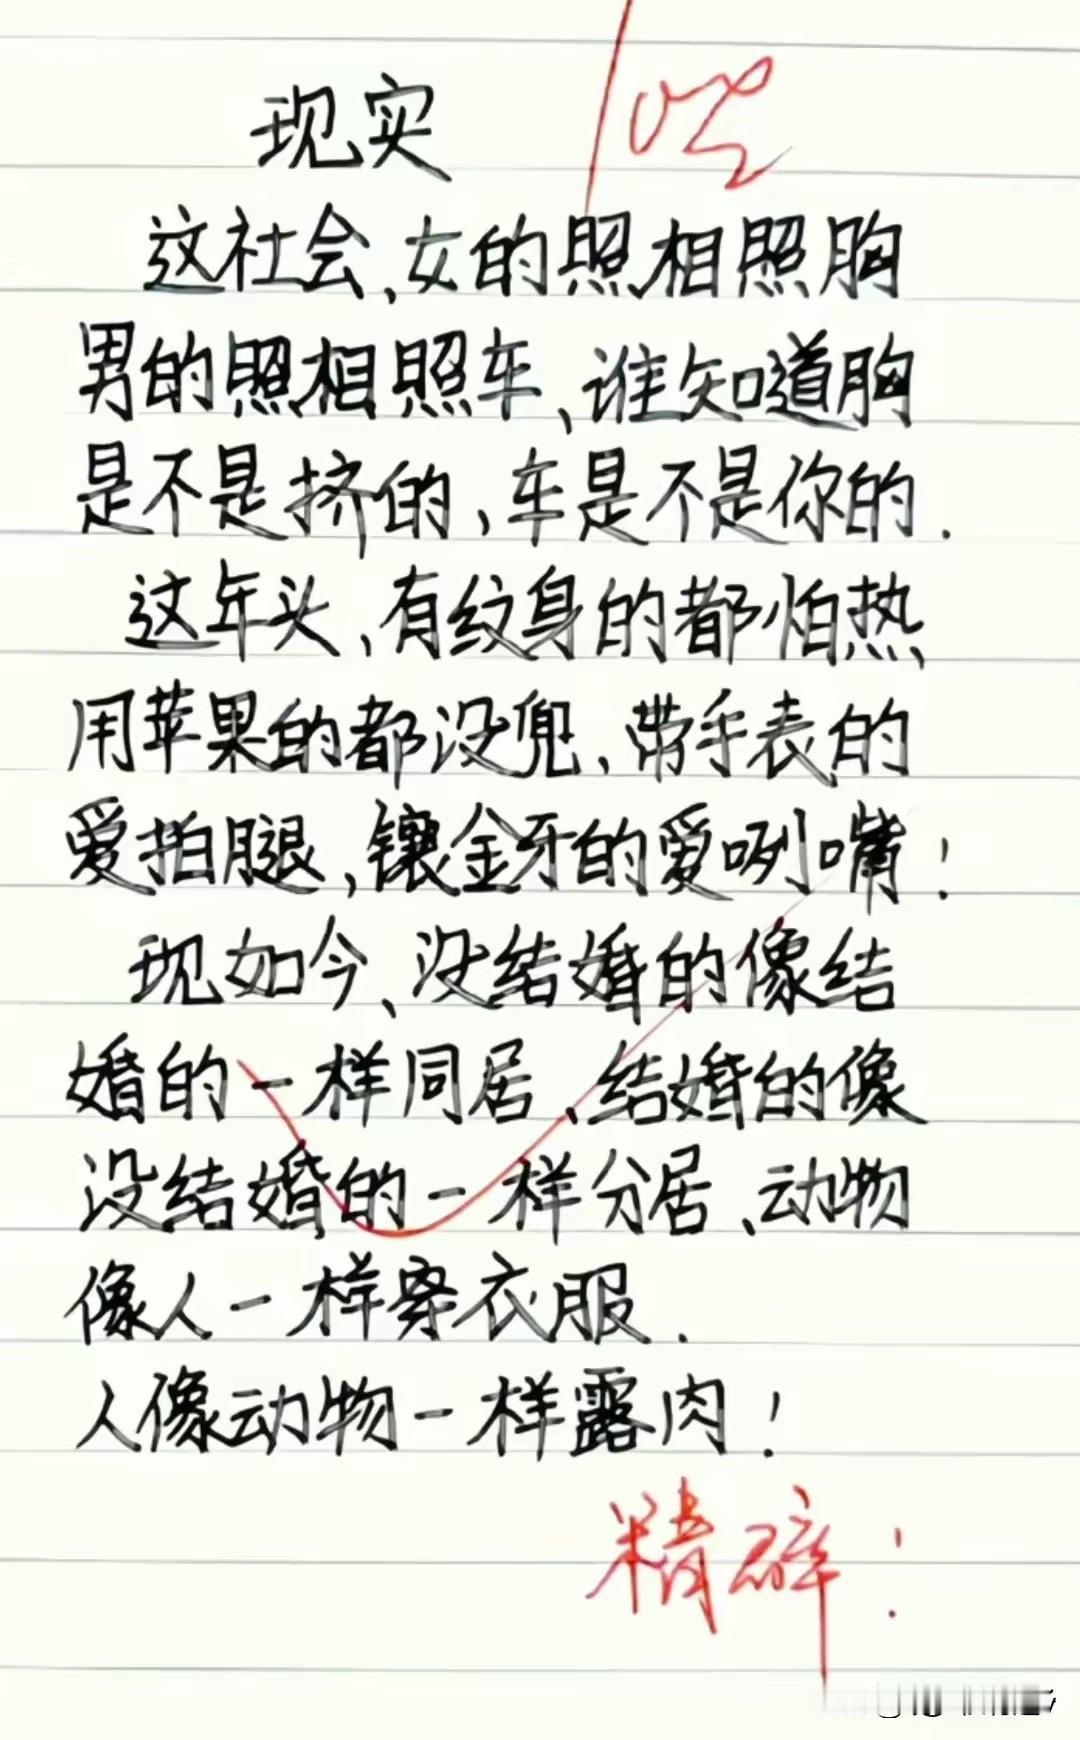 现实
这社会、女的照相照胸
男的照相照车、谁知道胸
是不是挤的，车是不是你的.
这年头、有纹身的都怕热、
用苹果的都没兜、带手表的
爱拍腿，镶金牙的爱咧嘴！
现如今、没结婚的像结
婚的一样同居、结婚的像
没结婚的一样分居、动物
像人一样穿衣服.
人像动物一样露肉！
精辟！